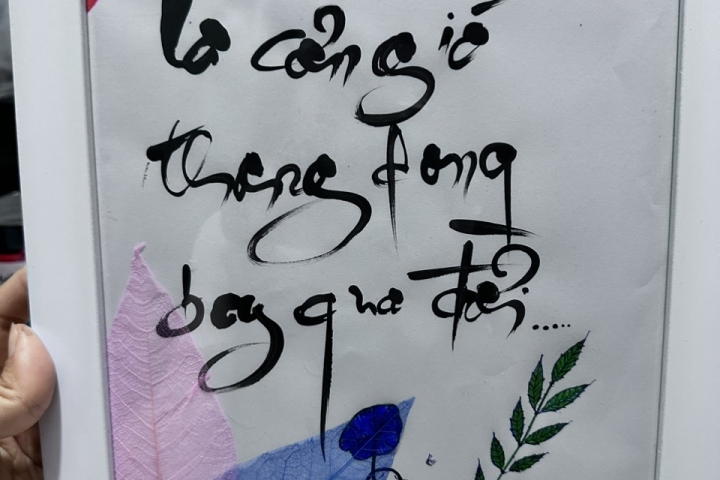 là cơn gió
thong dong
bay qua đời.....